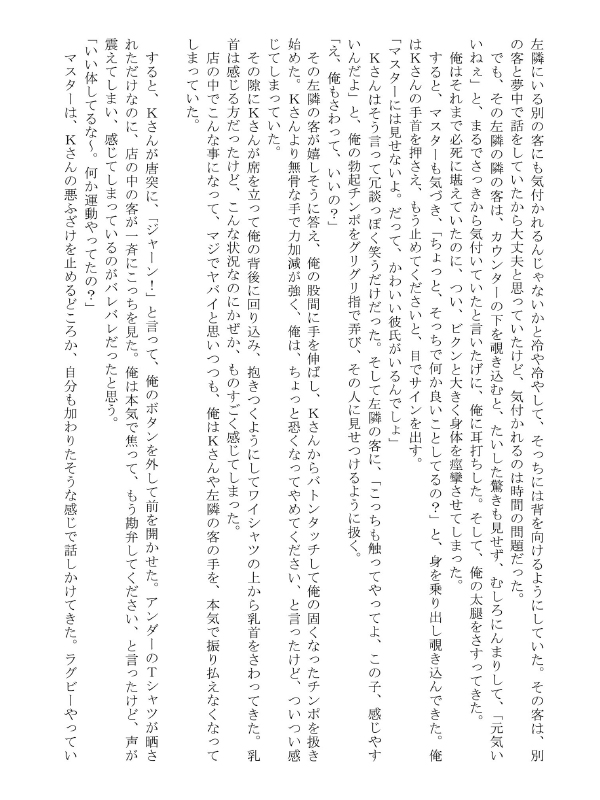 左隣にいる別の客にも気付かれるんじゃないかと冷や冷やして、そっちには背を向けるようにしていた。その客は、別
の客と夢中で話をしていたから大丈夫と思っていたけど、気付かれるのは時間の問題だった。
でも、その左隣の隣の客は、カウンターの下を覗き込むと、たいした驚きも見せず、むしろにんまりして、「元気い
いねぇ」と、まるでさっきから気付いていたと言いたげに、俺に耳打ちした。そして、俺の太腿をさすってきた。
俺はそれまで必死に堪えていたのに、つい、ビクンと大きく身体を痙攣させてしまった。
すると、マスターも気づき、「ちょっと、そっちで何か良いことしてるの?」と、身を乗り出し覗き込んできた。俺
はＫさんの手首を押さえ、もう止めてくださいと、目でサインを出す。
「マスターには見せないよ。だって、かわいい彼氏がいるんでしょ」
Ｋさんはそう言って冗談っぽく笑うだけだった。そして左隣の客に、「こっちも触ってやってよ、この子、感じやす
いんだよ」と、俺の勃起チンポをグリグリ指で弄び、その人に見せつけるように扱く。
「え、俺もさわって、いいの?」
その左隣の客が嬉しそうに答え、俺の股間に手を伸ばし、Ｋさんからバトンタッチして俺の固くなったチンポを扱き
始めた。Ｋさんより無骨な手で力加減が強く、俺は、ちょっと恐くなってやめてください、と言ったけど、ついつい感
じてしまっていた。
その隙にＫさんが席を立って俺の背後に回り込み、抱きつくようにしてワイシャツの上から乳首をさわってきた。乳
首は感じる方だったけど、こんな状況なのにかぜか、ものすごく感じてしまった。
店の中でこんな事になって、マジでヤバイと思いつつも、俺はＫさんや左隣の客の手を、本気で振り払えなくなって
しまっていた。
すると、Ｋさんが唐突に、「ジャーン!」と言って、俺のボタンを外して前を開かせた。アンダーのＴシャツが晒さ
れただけなのに、店の中の客が一斉にこっちを見た。俺は本気で焦って、もう勘弁してください、と言ったけど、声が
震えてしまい、感じてしまっているのがバレバレだったと思う。
「いい体してるな～。何か運動やってたの?」
マスターは、Ｋさんの悪ふざけを止めるどころか、自分も加わりたそうな感じで話しかけてきた。ラグビーやってい